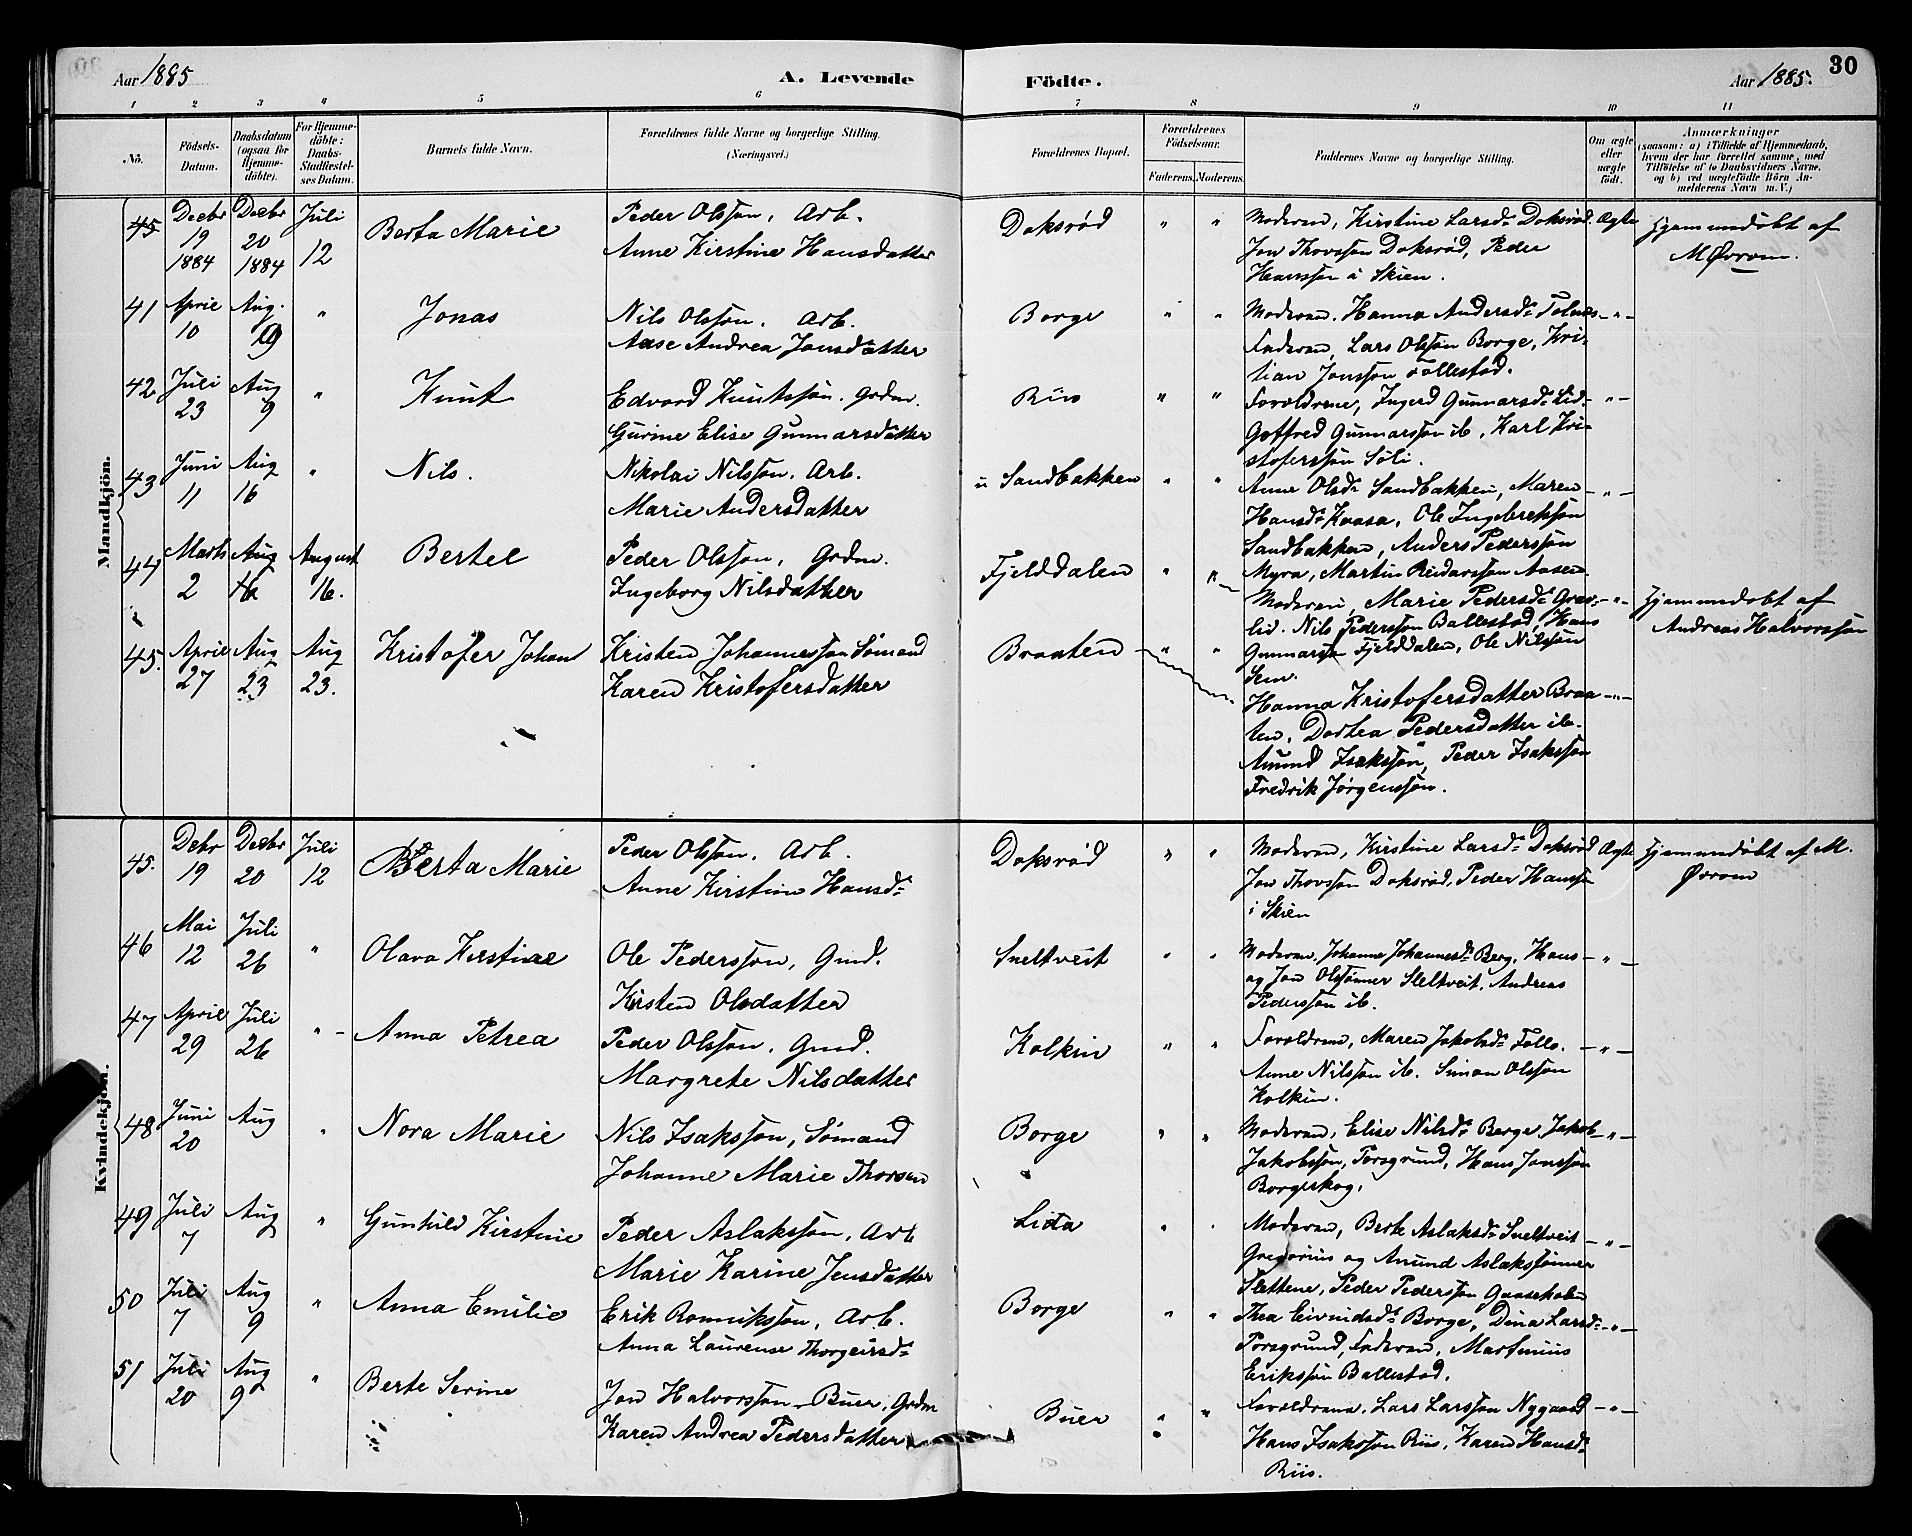 30
Aar 1885
A. Levende
Födte.
Aar 1885.
1 2 3 4 5 6 7 8 9 10 11
Nö.
Födsels-
Datum.
Daabsdatum
(ogsaa for
Hjemme-
döbte).
For Hjemme-
döbte:
Daabs-
Stadfæstel-
ses Datum.
Barnets fulde Navn.
Forældrenes fulde Navne og borgerlige Stilling.
(Næringsvei.)
Forældrenes Bopæl.
Forældrenes
Födselsaar.
Faderens. Moderens.
Faddernes Navne og borgerlige Stilling.
Om ægte
eller
uægte
födt.
Anmærkninger
(saasom: a) i Tilfælde af Hjemmedaab,
hvem der har forrettet samme, med
Tilföielse af to Daabsvidners Navne,
og b) ved uægtefödte Börn An-
melderens Navn m. V.)
Mandkjön.
45 Decbr 19 1884 Decbr 20 1884 Juli 12 Berta Marie
Peder Olsson, Arb.
Anne Kirstine Hansdatter
Doksrød " "
Moderen, Kirstine Larsdr Doksrød. Ægte
Jon Thovsson Doksrød, Peder
Hansson i Skien.
Hjemmedøbt af
M Øvrom.
41 April 10 Aug. 9 " Jonas
Nils Olsson. Arb.
Aase Andrea Jonsdatter
Borge " "
Moderen. Hanna Andersdr Tolnes -"-
Faderen, Lars Olsson Borge, Kri-
stian Jonsson Follestad.
42 Juli 23 Aug 9 " Knut
Edvard Knutsson. Grdm.
Gurine Elise Gunnarsdatter
Riis " "
Forældrene, Ingerd Gunnarsdr Lid- -"-
Gotfred Gunnarsson ib, Karl Kri-
stofersson Søli.
43 Juni 11 Aug 16 " Nils.
Nikolai Nilsson. Arb.
Marie Andersdatter
u Sandbakken " "
Anne Olsdr Sandbakken, Maren -"-
Hansdr Kaasa, Ole Ingebretsson
Sandbakken, Anders Pedersson
Myra, Martin Reidarsson Aasen.
44 Marts 2 Aug 16 August 16. Bertel
Peder Olsson, Grdm.
Ingeborg Nilsdatter
Fjelddalen " "
Moderen, Marie Pedersdr Grav- -"-
lid. Nils Pedersson Ballestad, Hans
Gunnarssn Fjelddalen, Ole Nilsson
Sem.
Hjemmedøbt af
Andreas Halvorsson
45. April 27 Aug 23 Aug 23. Kristofer Johan
Kristen Johannesson Sømand
Karen Kristofersdatter
Braaten " "
Hanna Kristofersdatter Braa- -"-
ten, Dortea Pedersdatter ib.
Amund Isaksson, Peder Isaksson
Fredrik Jørgensson.
Kvindekjön.
45. Debr 19 Decbr 20 Juli 12 Berta Marie
Peder Olsson. Arb.
Anne Kirstine Hansdr
Doksrød " "
Moderen, Kirstine Larsdr Doksrød Ægte
Jon Thovsson Doksrød, Peder Hanssn
i Skien
Hjemmedøbt af M.
Øvrom
46 Mai 12 Juli 26 " Olava Kirstine
Ole Pedersson, Gmd.
Kirsten Olsdatter
Sneltveit " "
Moderen, Johanne Johannesdr Berg. Hans -"-
og Jon Olssønner Sleltveit, Andreas
Pedersson ib.
47 April 29 Juli 26 "- Anna Petrea
Peder Olsson. Gmd.
Margrete Nilsdatter
Kolkin " "
Forældrene, Maren Jakobsdr Follo. -"-
Anne Nilsson ib. Simon Olsson
Kolkin.
48 Juni 20 Aug " Nora Marie
Nils Isaksson, Sømand
Johanne Marie Thorsen
Borge " "
Moderen, Elise Nilsdr Borge, Jakob -"-
Jakobsson, Porsgrund, Hans Jonsson
Borgeskog,
49 Juli 7 Aug " Gunhild Kirstine
Peder Aslaksson, Arb
Marie Karine Jensdatter
Lida " "
Moderen, Berte Aslaksdr Sneltveit -"-
Gregorius og Anund Aslakssønner
Slettene, Peder Pedersson Gaasehølen
50 Juli 7 Aug 9 " Anna Emilie
Erik Romniksson, Arb.
Anna Laurense Thorgeirsdr
Borge " "
Thea Eivindsdr Borge, Dina Larsdr -"-
Porsgrund, Faderen, Martinius
Eriksson Ballestad.
51 Juli 20 Aug 9 " Berte Serine
Jon Halvorsson Buer, Grdm
Karen Andrea Pedersdatter
Buer " "
Forældrene. Lars Larsson Nygaard -"-
Hans Isaksson Riis, Karen Hansdr
Riis.